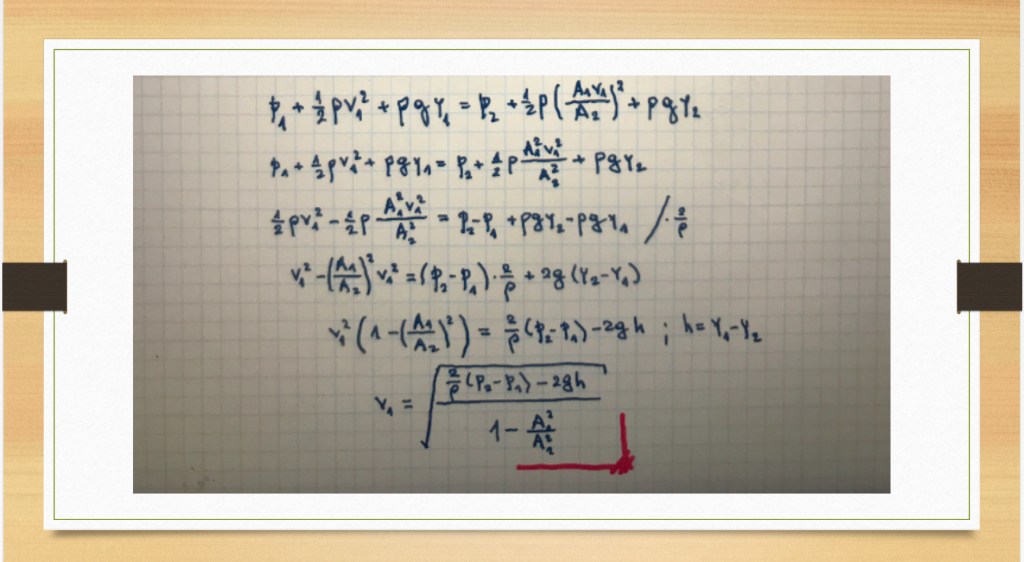 p₁ + ½ρv₁² + ρgY₁ = p₂ + ½ρ(A₁v₁/A₂)² + ρgY₂
p₁ + ½ρv₁² + ρgY₁ = p₂ + ½ρ A₁²v₁²/A₂² + ρgY₂
½ρv₁² - ½ρ A₁²v₁²/A₂² = p₂-p₁ + ρgY₂-ρgY₁ / · 2/ρ
v₁² - (A₁/A₂)² v₁² = (p₂-p₁) · 2/ρ + 2g (Y₂-Y₁)
v₁² (1 - (A₁/A₂)²) = 2/ρ (p₂-p₁) - 2gh ; h = Y₁-Y₂
v₁ = √((2/ρ (p₂-p₁) - 2gh) / (1 - A₁²/A₂²))